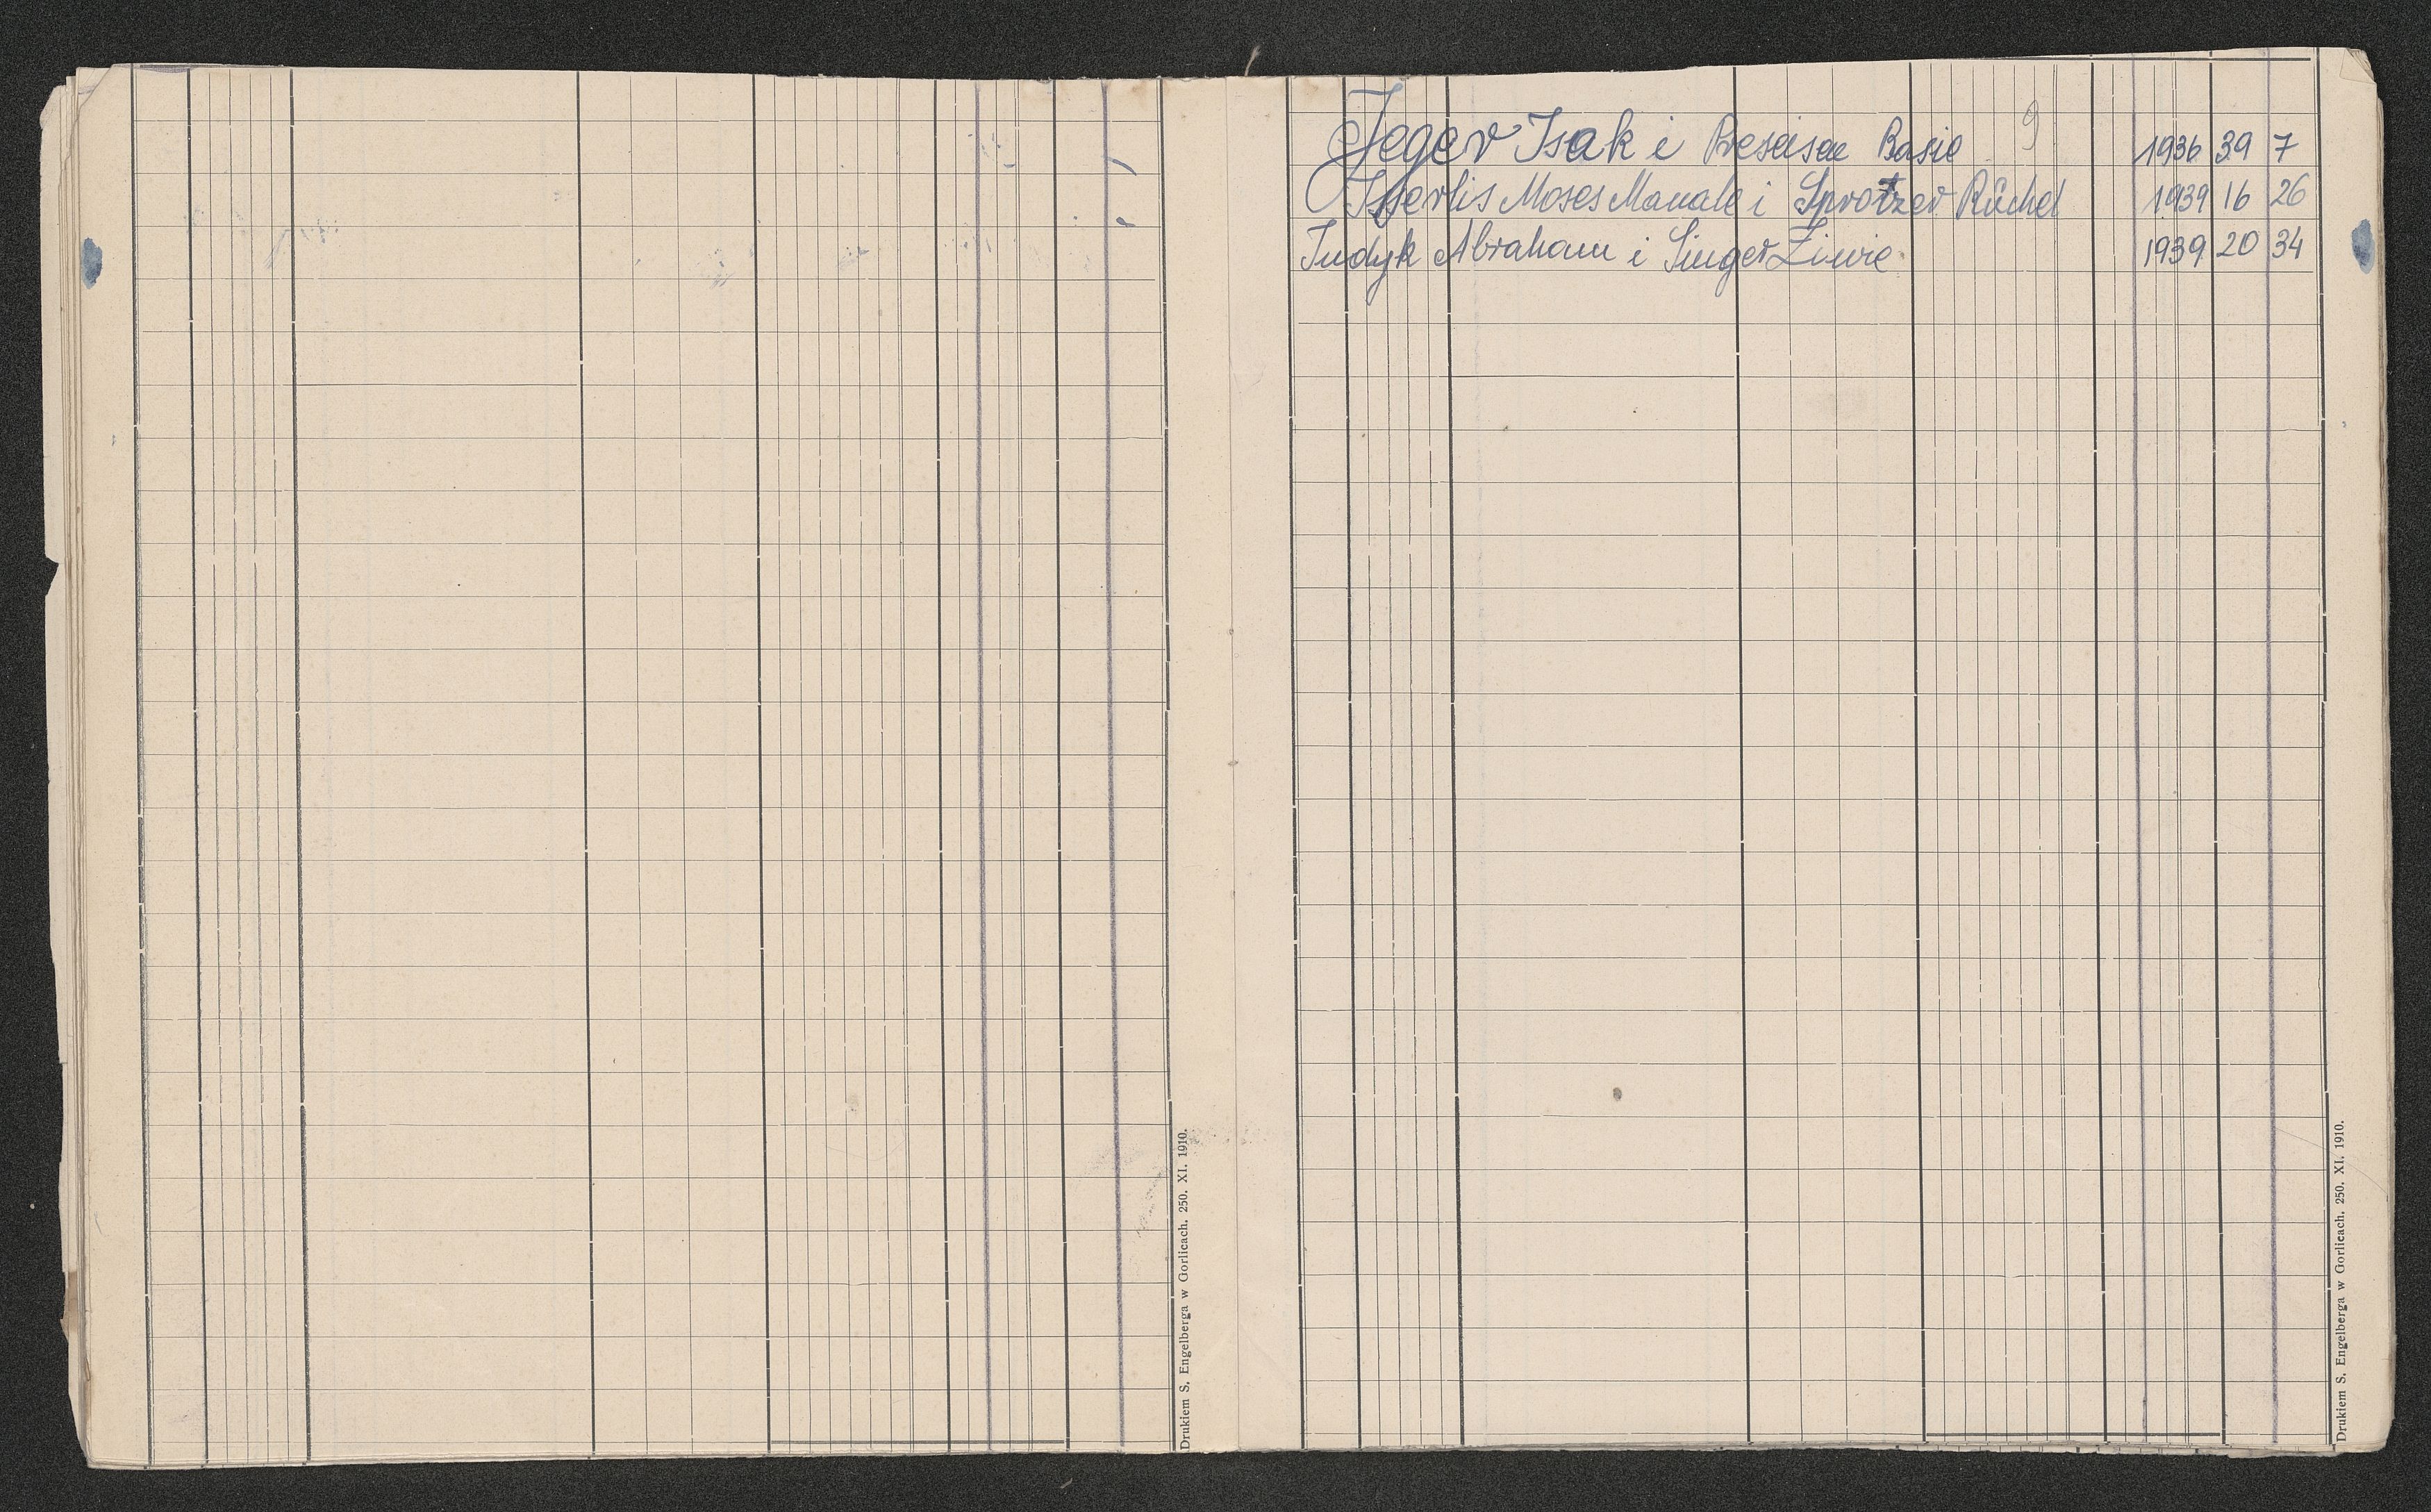 9
Jeger Isak i Preseisen Basie 1936 39 7
Isserlis Moses Manale i Sprotzer Rûchel 1939 16 26
Indyk Abraham i Singer Ziwie 1939 20 34
Drukiem S. Engelberga w Gorlicach. 250. XI. 1910.
Drukiem S. Engelberga w Gorlicach. 250. XI. 1910.